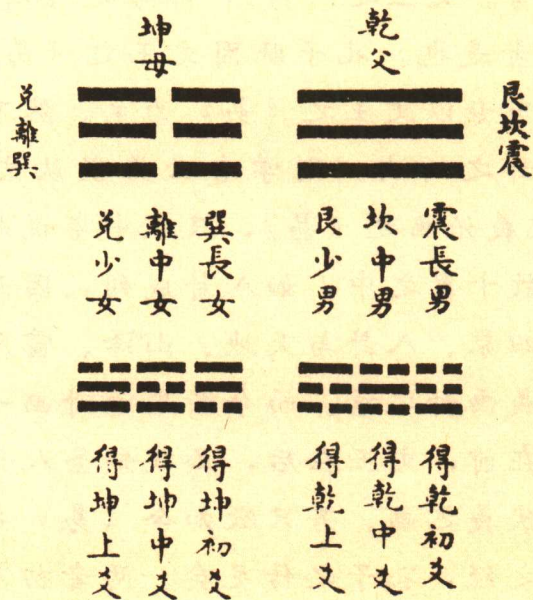 乾父
坤母
艮坎震
兌離巽
震長男
坎中男
艮少男
巽長女
離中女
兌少女
得乾初爻
得乾中爻
得乾上爻
得坤初爻
得坤中爻
得坤上爻